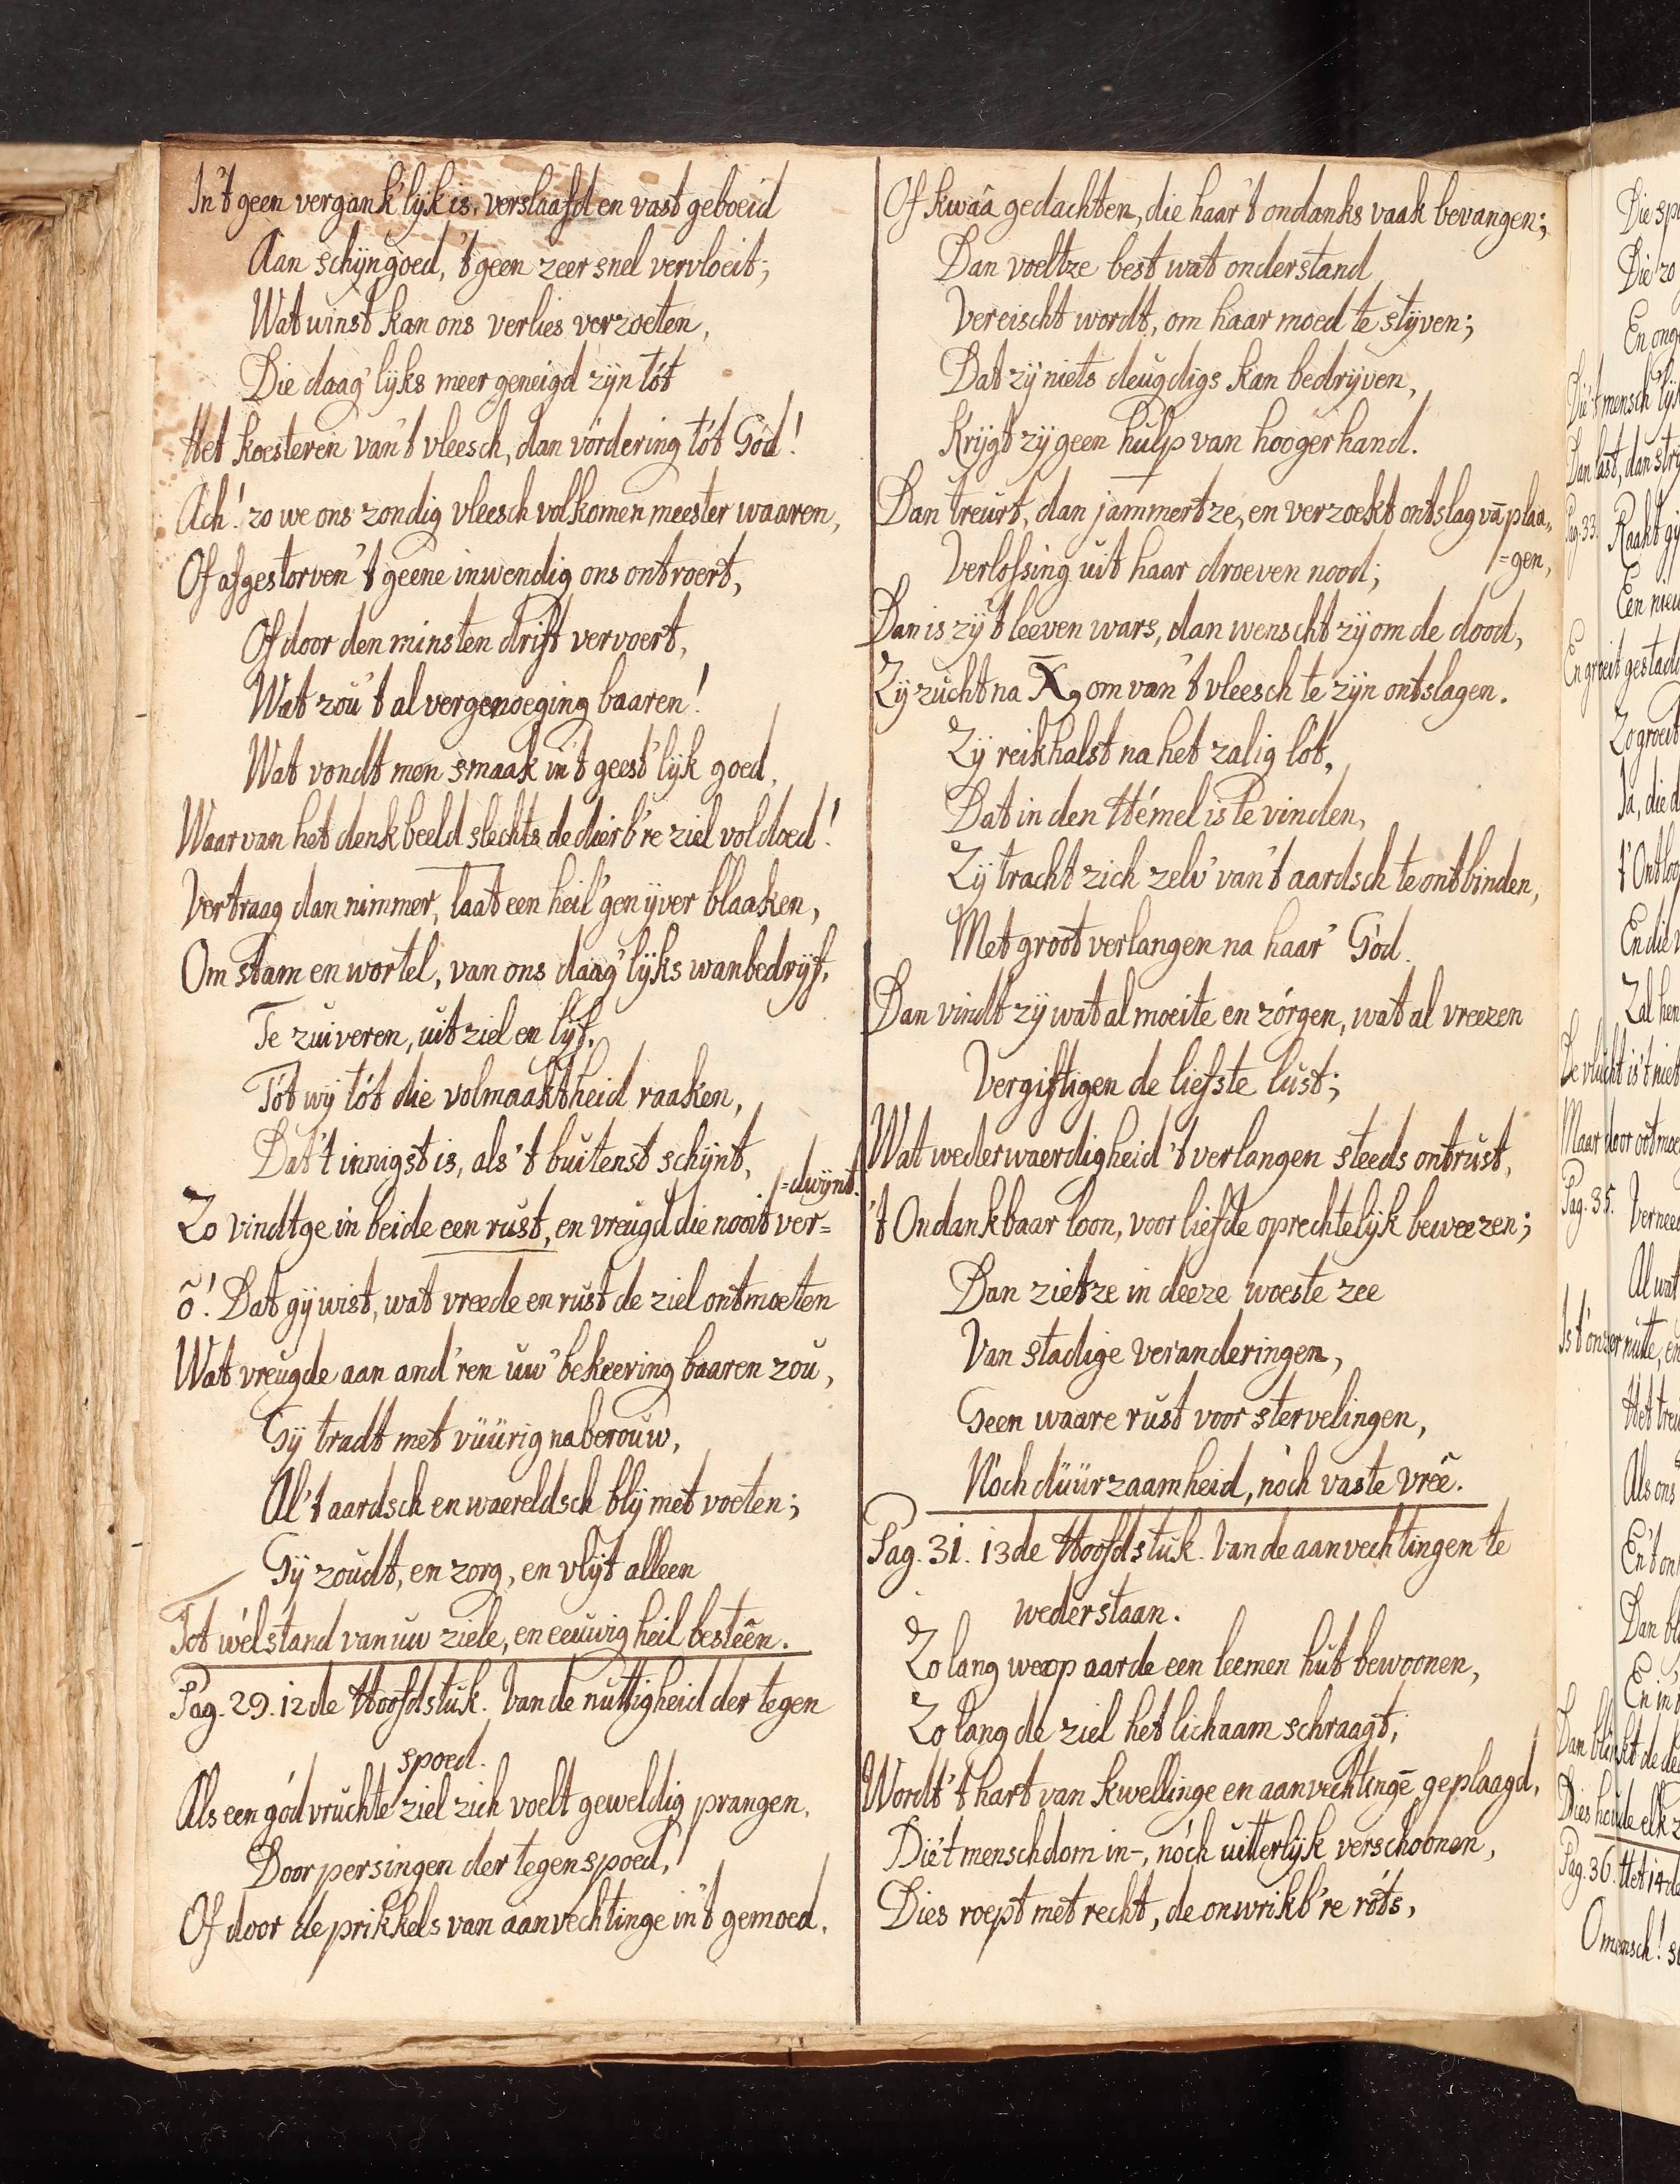 In't geen vergank'lijk is, verslaafd en vast geboeid
Aan schijngoed, 't geen zeer snel vervloeit;
Wat winst kan ons verlies verzoeten,
Die daag'lijks meer geneigd zijn tót
Het koesteren van't vleesch, dan vórdering tót Gód!
Ach! zo we ons zondig vleesch volkomen meester waaren,
Of afgestorven 't geene inwendig ons ontroert,
Of door den minsten drift vervoert,
Wat zou 't al vergenoeging baaren!
Wat vondt men smaak in't geest'lijk goed,
Waarvan het denkbeeld slechts de dierb're ziel voldoed!
Vertraag dan nimmer, laat een heil'gen ijver blaaken,
Om stam en wortel, van ons daag'lijks wanbedrijf,
Te zuiveren, uit ziel en lijf,
Tót wij tót die volmaaktheid raaken,
Dat 't innigst is, als 't buitenst schijnt,
Zo vindtge in beide een rust, en vreugd die nooit ver=
=dwijnt.
õ! Dat gij wist, wat vreede en rust de ziel ontmoeten
Wat vreugde aan and'ren uw' bekeering baaren zou,
Gij tradt met vüürig naberouw,
Al't aardsch en waereldsch blij met voeten;
Gij zoudt, en zorg, en vlijt alleen
Tot wélstand van uw ziele, en eeuwig heil besteên.
Pag. 29. 12de Hoofdstuk. Van de nuttigheid der tegen
spoed.
Als een gódvruchte ziel zich voelt geweldig prangen,
Door persingen der tegenspoed,
Of door de prikkels van aanvechtinge in't gemoed,
Of kwaâ gedachten, die haar 't ondanks vaak bevangen;
Dan voeltze best wat onderstand
Vereischt wordt, om haar moed te stijven;
Dat zij niets deugdigs kan bedrijven,
Krijgt zij geen hulp van hooger hand.
Dan treurt, dan jammertze, en verzoekt ontslag vā plaa,,
=gen,
Verlossing uit haar droeven nood;
Dan is zij 't leeven wars, dan wenscht zij om de dood,
Zij zucht na X̄9 om van 't vleesch te zijn ontslagen.
Zij reikhalst na het zalig lót,
Dat in den Hémel is te vinden,
Zij tracht zich zelv' van't aardsch te ontbinden,
Met groot verlangen na haar' Gód.
Dan vindt zij wat al moeite en zórgen, wat al vreezen
Vergiftigen de liefste lust;
Wat wederwaerdigheid 't verlangen steeds ontrust,
't Ondankbaar loon, voor liefde oprechtelijk beweezen;
Dan zietze in deeze woeste zee
Van stadige veranderingen,
Geen waare rust voor stervelingen,
Nóch düürzaamheid, nóch vaste vreê.
Pag. 31. 13de Hoofdstuk. Van de aanvechtingen te
wederstaan.
Zo lang we op aarde een leemen hut bewoonen,
Zo lang de ziel het lichaam schraagt,
Wordt 't hart van kwellinge en aanvechtingē geplaagd,
Die't menschdom in-, nóch uitterlijk verschoonen,
Dies roept met recht, de onwrikb're róts,
Die zo
Pag. 33.
Raakt gij
Een nieu
En groeit gestadi
Zo groeit
Ja, die d
En die
Zal hen
De vlucht is't niet
Maar door ootmoe
Pag. 35.
Al wat
Is t'onzer nutte, en
Als ons
En't on
Dan blinkt de de
Dies houde elk z
Pag. 36. Het 14de
O mensch!